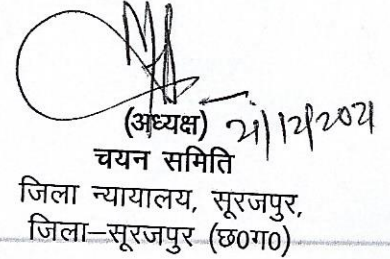 (अध्यक्ष) 21/12/2021
चयन समिति
जिला न्यायालय, सूरजपुर,
जिला–सूरजपुर (छ0ग0)